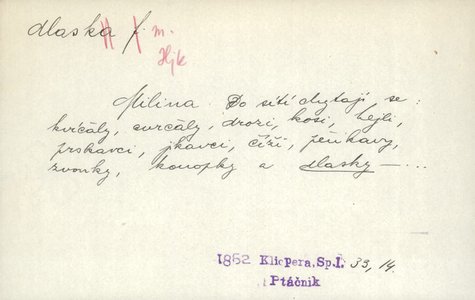 dlaska f. m.
Hjk
Milina. Do sítí chytají se:
kvíčaly, cvrčaly, drozi, kosi, hejli,
prskavci, jkavci, čížì, pěnkavy,
zvonky, konopky a dlasky – ...
1862 Klicpera, Sp.I. 33, 14.
Ptáčník